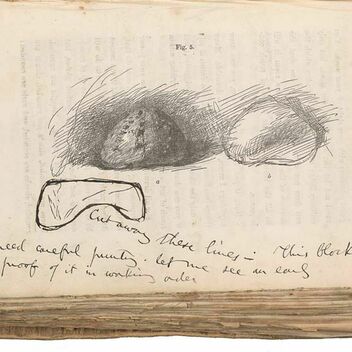 Fig. 5.
a
b
Cut away these lines— This block
need careful printing. Let me see an early
proof of it in working order